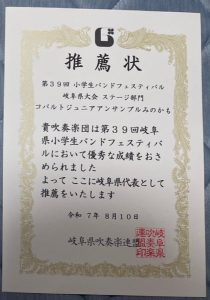 推薦状
第39回 小学生バンドフェスティバル
岐阜県大会 ステージ部門
コバルトジュニアアンサンブルみのかも
貴吹奏楽団は第39回岐阜
県小学生バンドフェスティバ
ルにおいて優秀な成績をおさ
められました
よって ここに岐阜県代表として
推薦をいたします
令和 7年 8月10日
岐阜県吹奏楽連盟